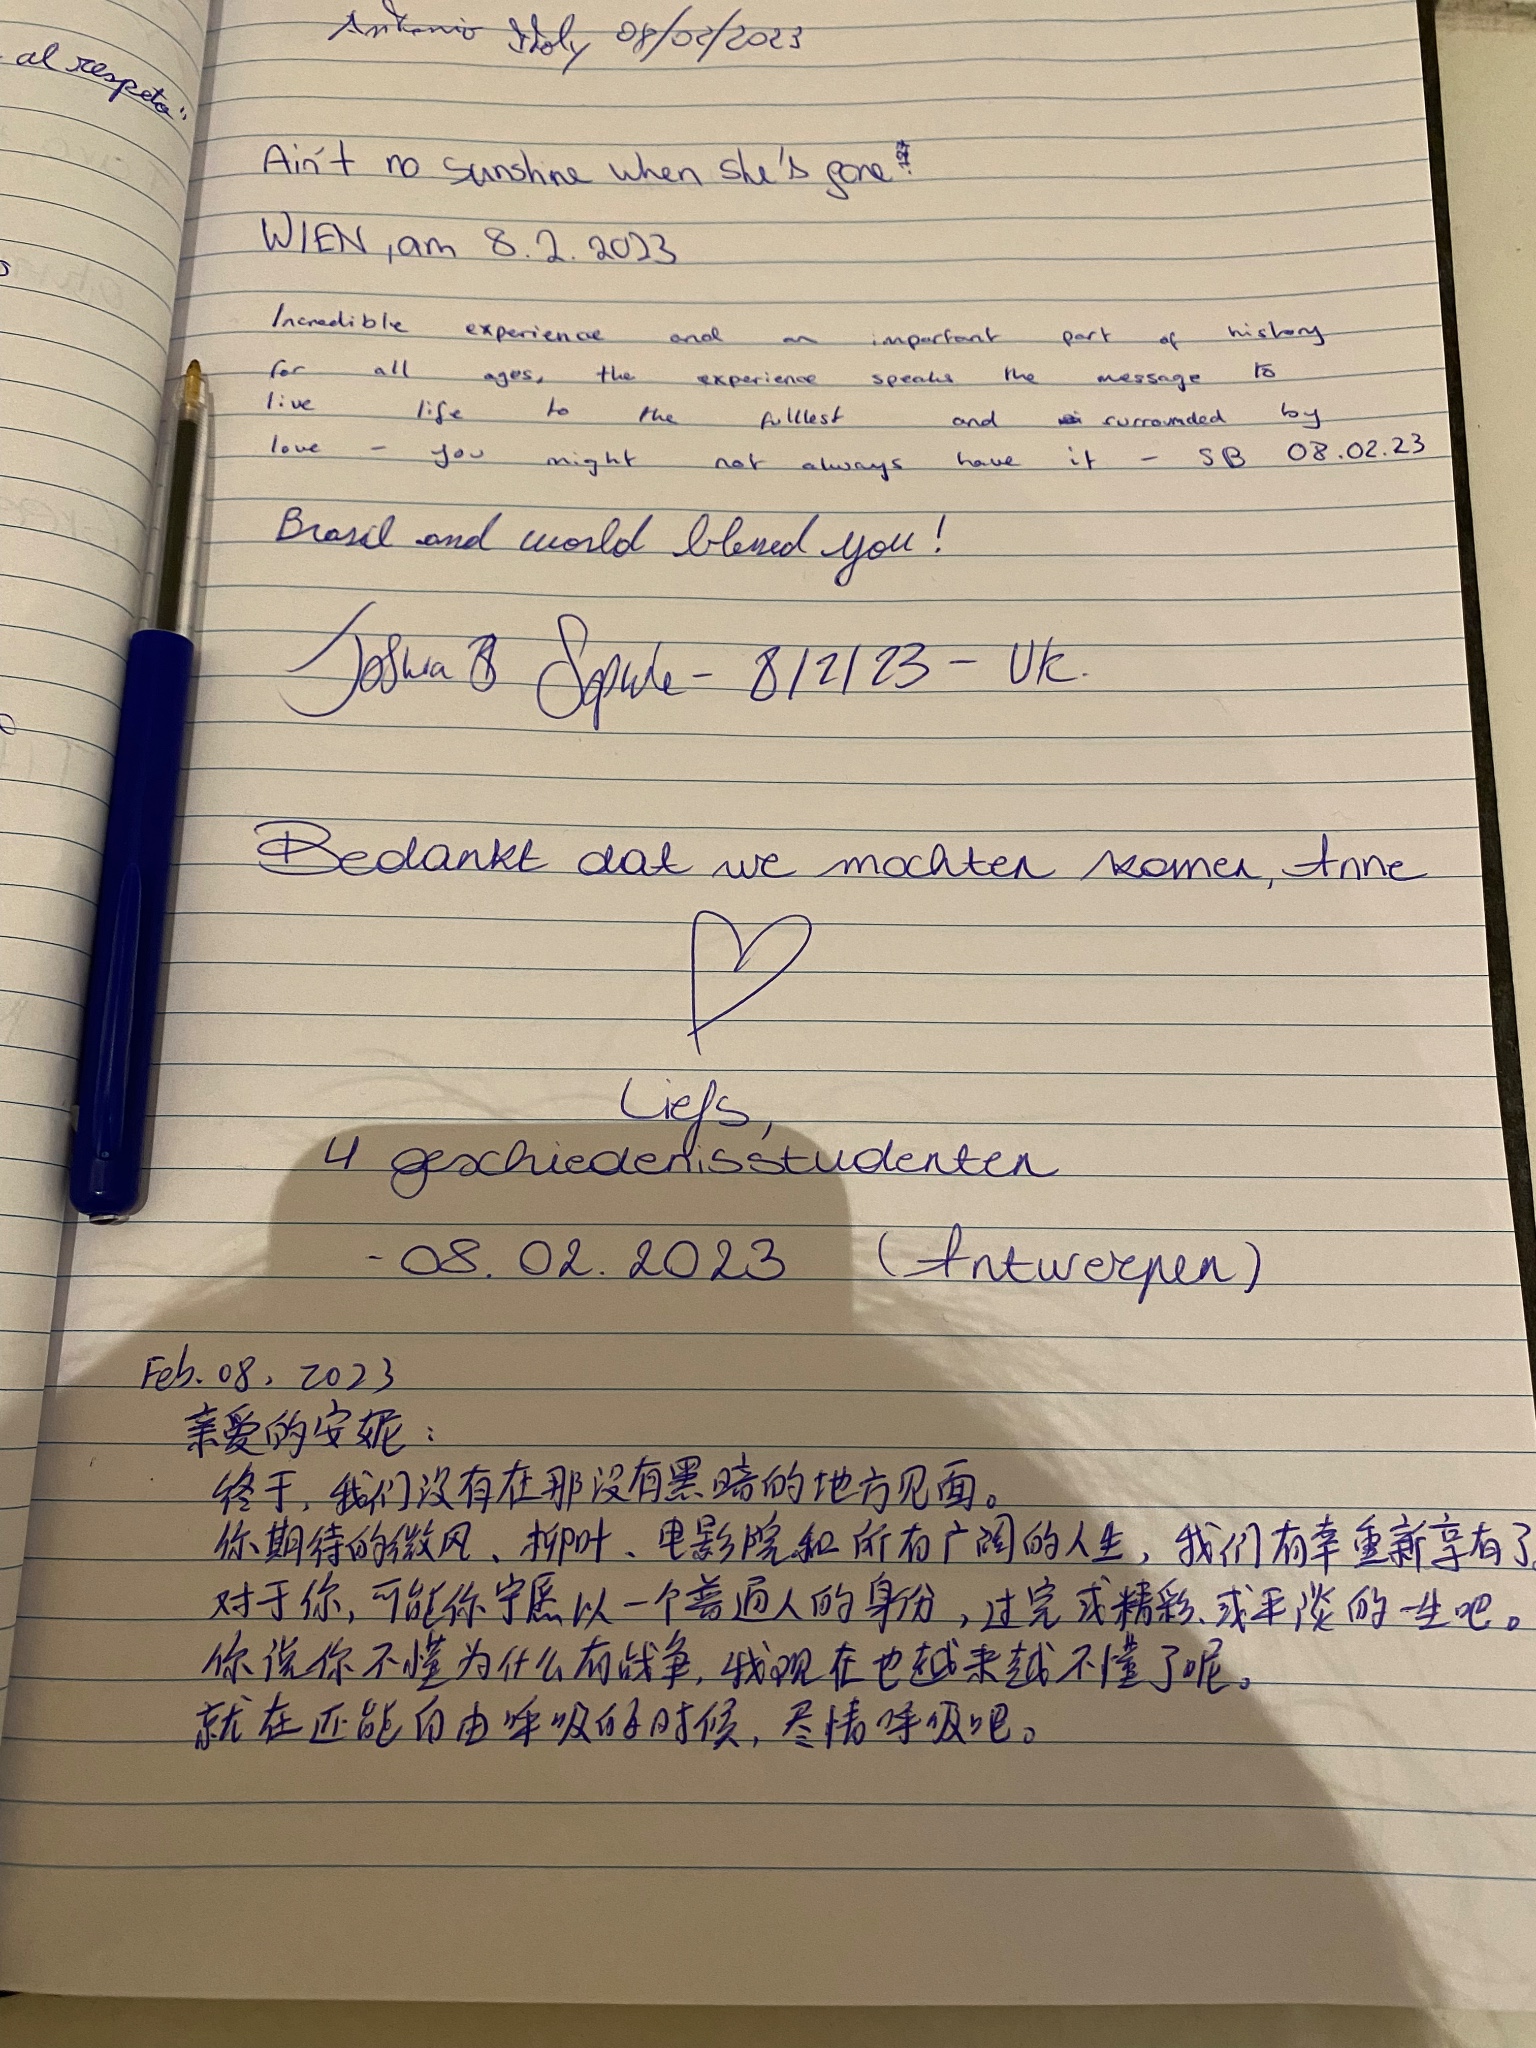 al respeto"
Antonio Italy 08/02/2023
Ain't no sunshine when she's gone
WIEN, am 8.2.2023
Incredible experience and an important part of history
for all ages, the experience speaks the message to
live life to the fulllest and surrounded by
love - you might not always have it - SB 08.02.23
Brasil and world blessed you!
Joshua B - 8/2/23 - UK.
Bedankt dat we mochten komen, Anne
Liefs,
4 geschiedenisstudenten
- 08.02.2023 (Antwerpen)
Feb. 08, 2023
亲爱的安妮：
终于，我们没有在那没有黑暗的地方见面。
你期待的微风、柳叶、电影院和所有广阔的人生，我们有幸重新享有了
对于你，可能你宁愿以一个普通人的身份，过完或精彩、或平淡的一生吧。
你说你不懂为什么有战争，我现在也越来越不懂了呢。
就在还能自由呼吸的时候，尽情呼吸吧。